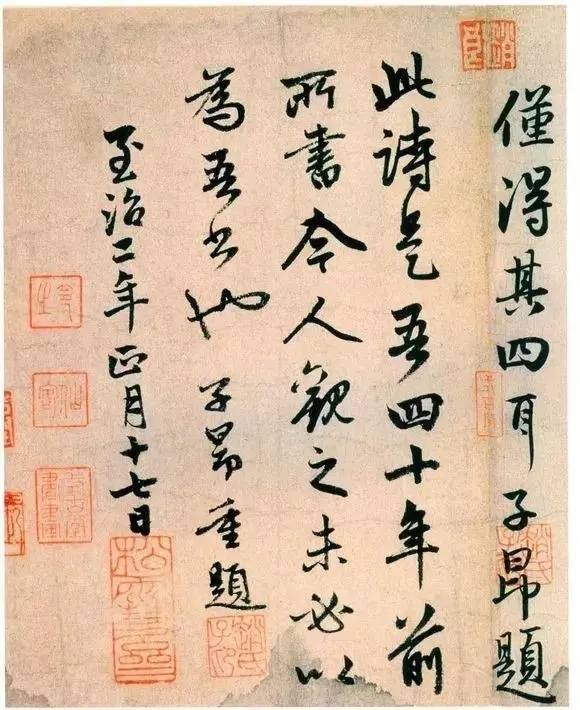 僅得其四耳子昂題
此詩是吾四十年前
所書今人觀之未必以
為吾書也子昂重題
至治二年正月十七日
趙氏子印
松雪齋